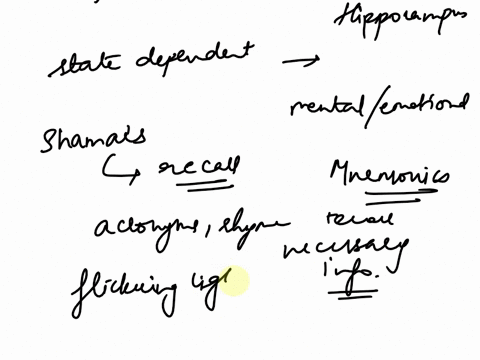 Hippocampus
state dependent →
mental/emotional
Shamais
↳ recall
Mnemonics
acronyms, rhyme
necessary
info.
flickering